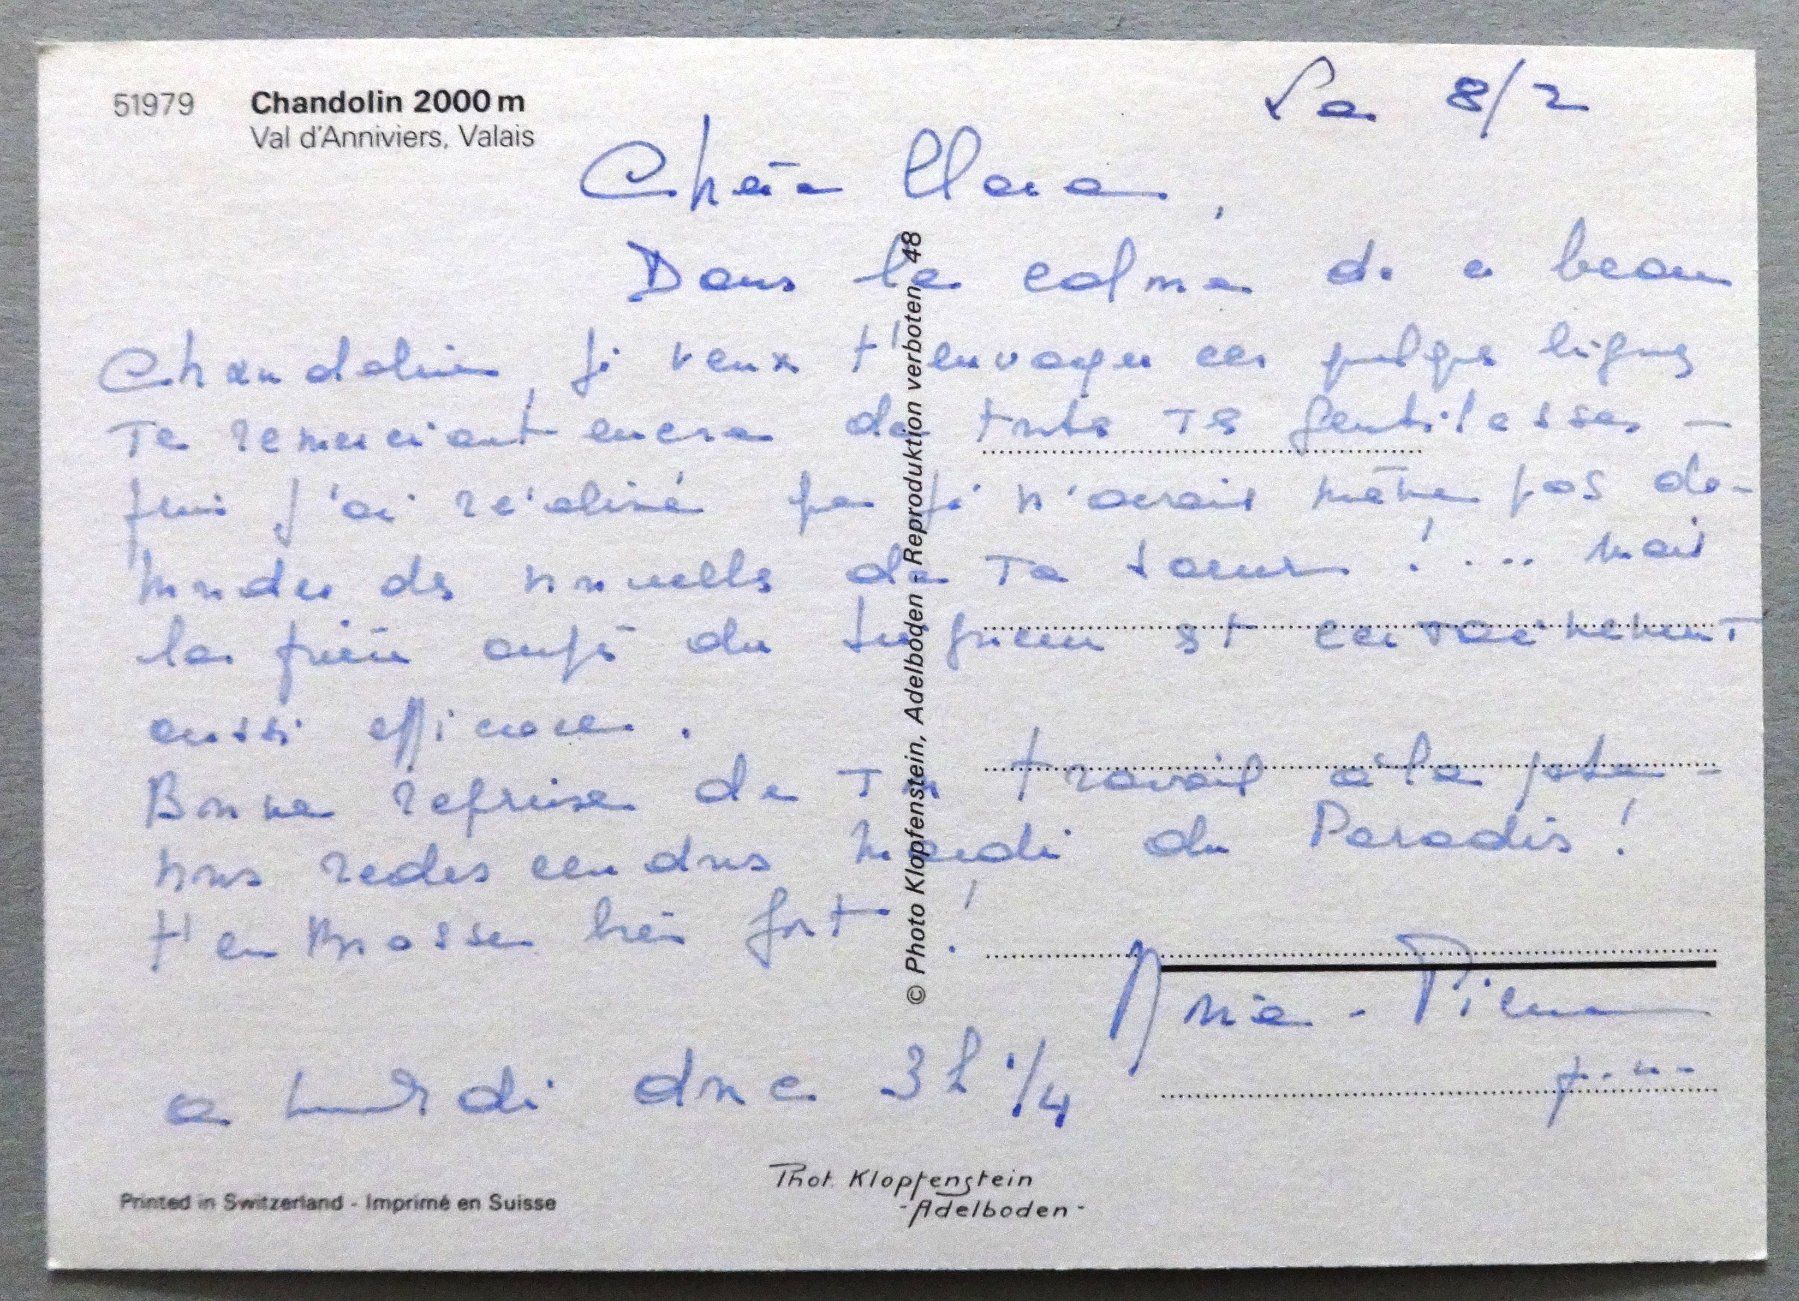 51979 Chandolin 2000 m
Val d'Anniviers, Valais
Le 8/2
Chère Clara,
Dans le calme de ce beau
Chandolin, je veux t'envoyer ces quelques lignes
Te remerciant encore de toutes Tes gentillesses -
puis j'ai réalisé que je n'avais même pas de-
mander des nouvelles de Ta soeur ! ... mais
la prière auprès du Seigneur est certainement
aussi efficace.
Bonne reprise de Ton travail à la
nous redescendons mardi du Paradis !
t'embrasse très fort !
a lundi donc 3h 1/4
© Photo Klopfenstein, Adelboden - Reproduktion verboten 48
Printed in Switzerland - Imprimé en Suisse
Phot. Klopfenstein
- Adelboden -